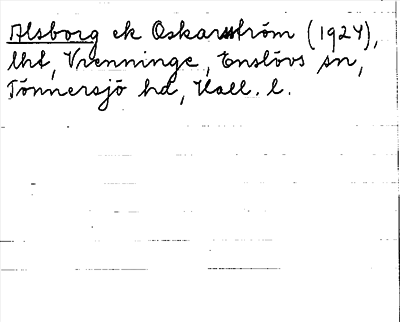 Alsborg ek Oskarsström (1924),
lht, Vrenninge, Enslövs sn,
Tönnersjö hd, Hall. l.